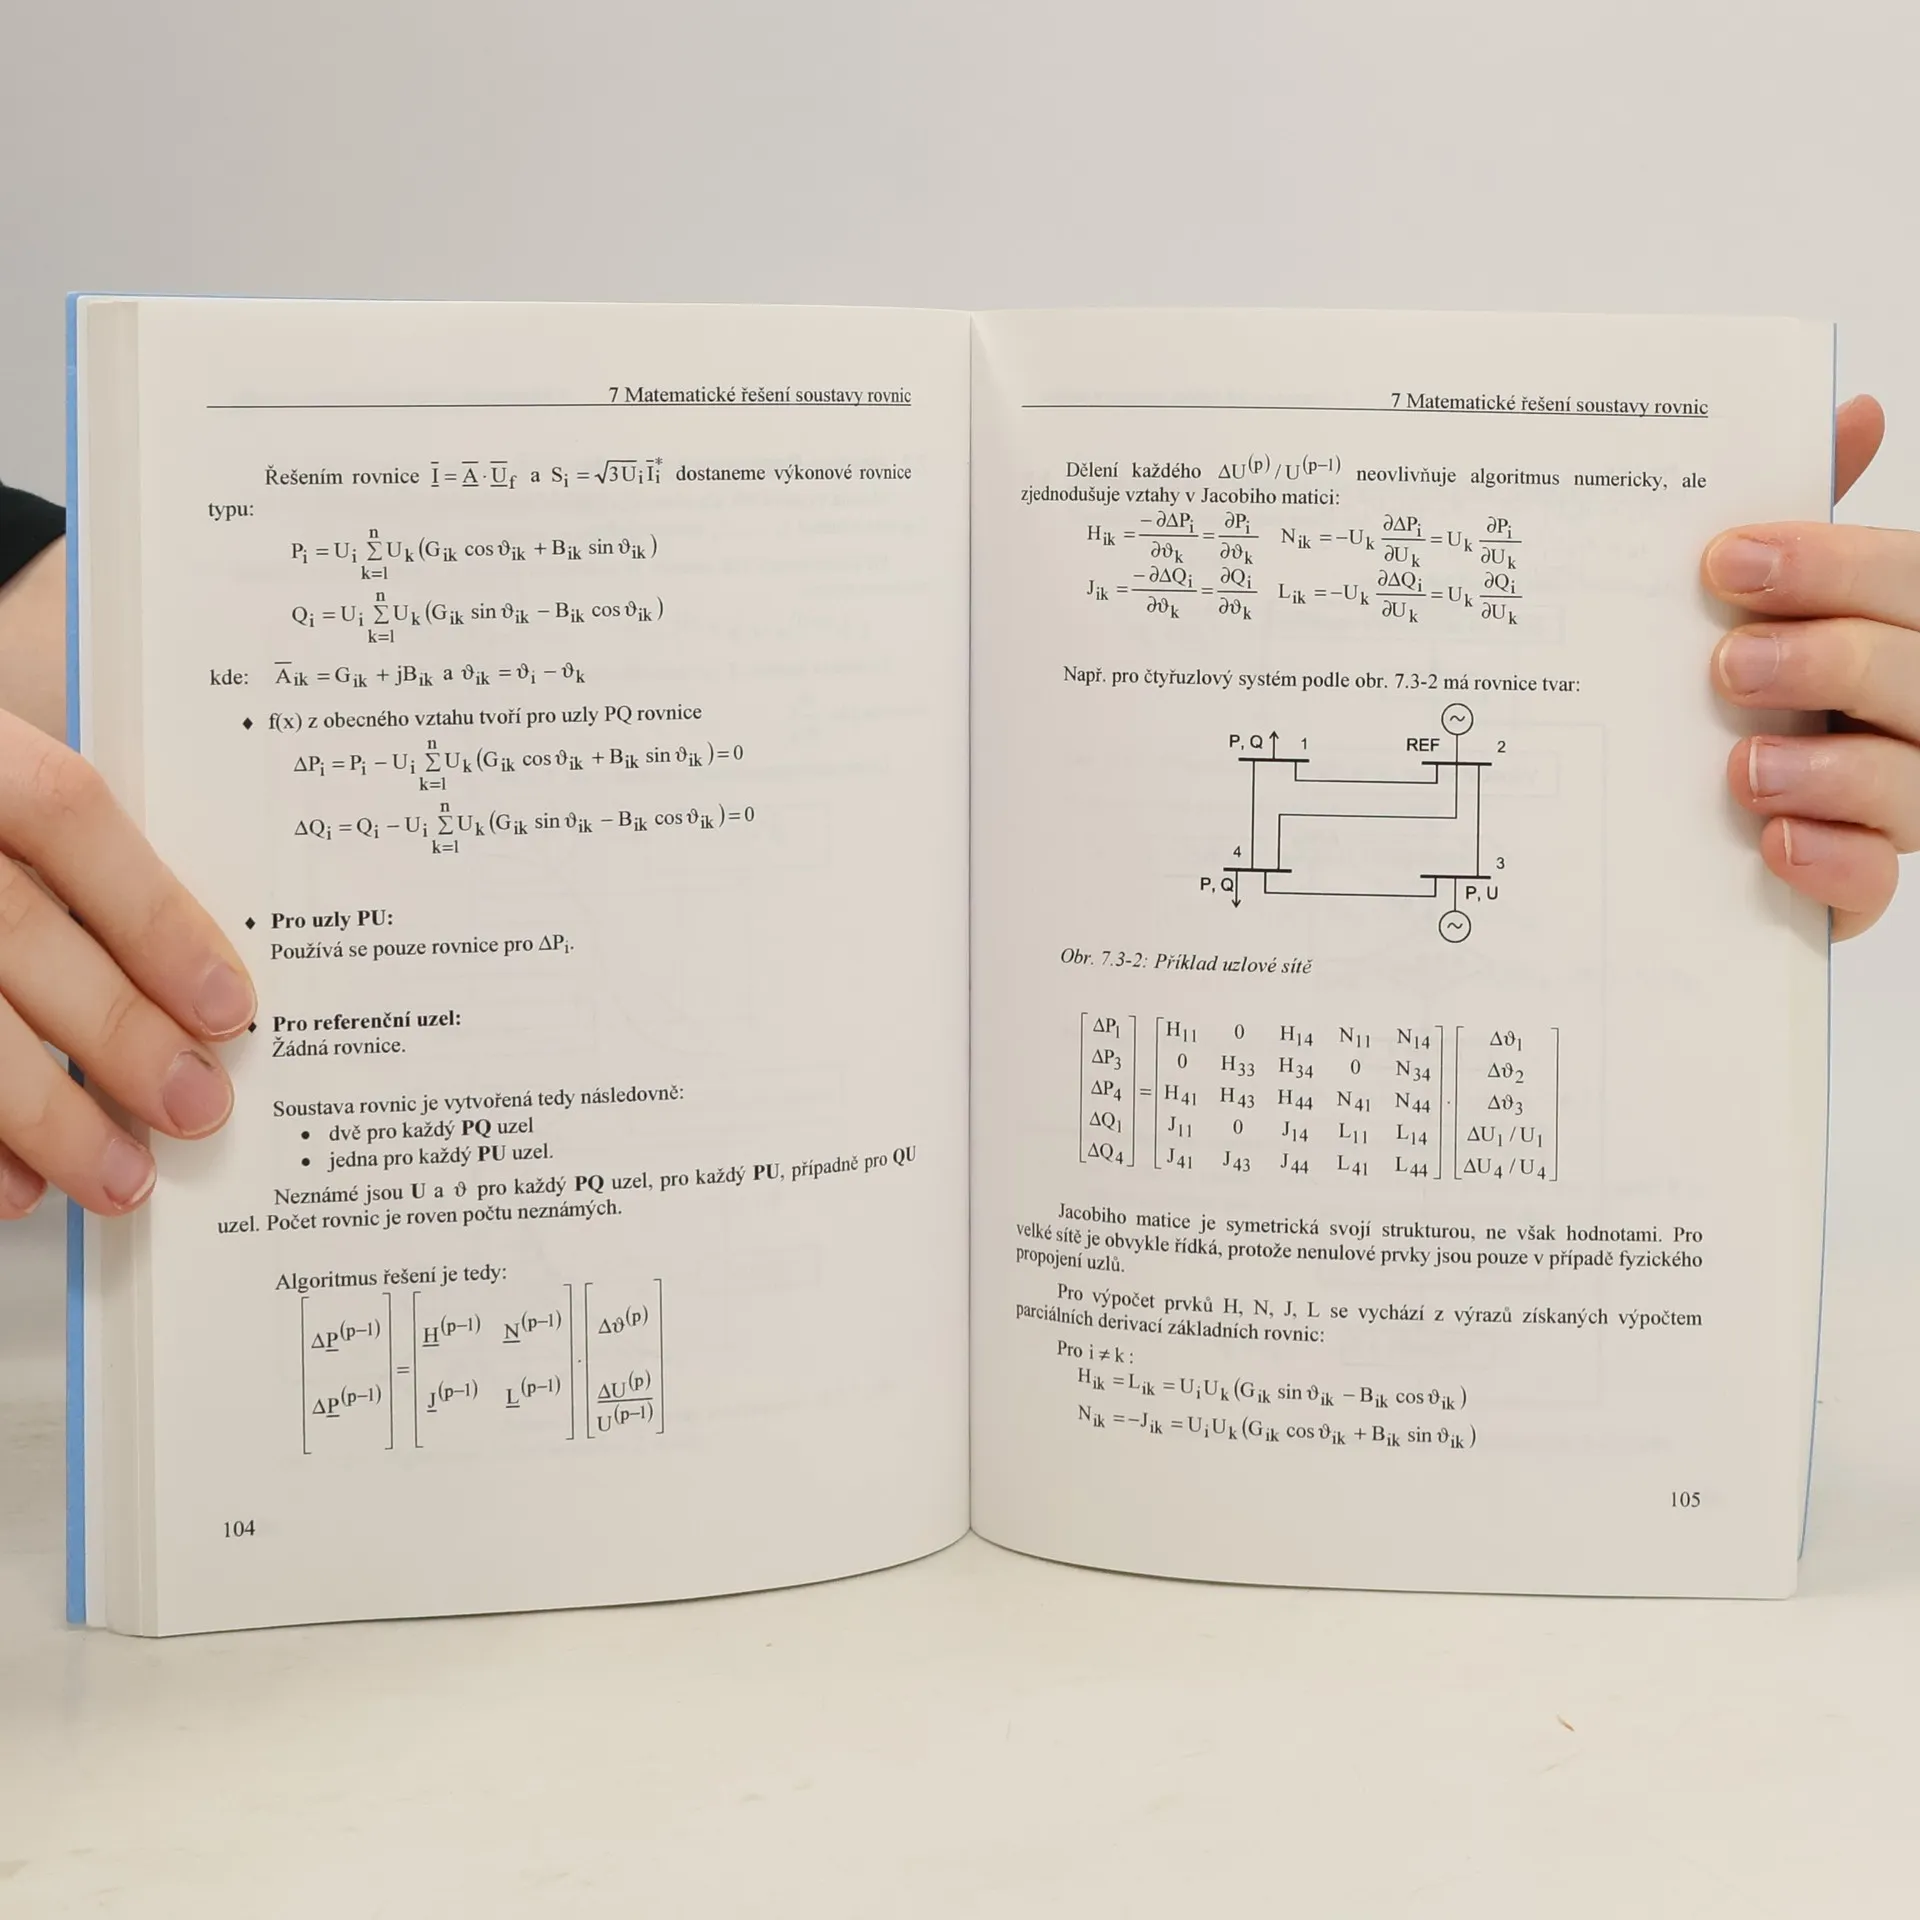 7 Matematické řešení soustavy rovnic
Řešením rovnice I̲̅ = A̲̅ · U̲̅f a Si = √3U̅iI̅i* dostaneme výkonové rovnice
typu:
Pi = Ui ∑(k=1..n) Uk (Gik cos ϑik + Bik sin ϑik)
Qi = Ui ∑(k=1..n) Uk (Gik sin ϑik − Bik cos ϑik)
kde: A̅ik = Gik + jBik a ϑik = ϑi − ϑk
♦ f(x) z obecného vztahu tvoří pro uzly PQ rovnice
ΔPi = Pi − Ui ∑(k=1..n) Uk (Gik cos ϑik + Bik sin ϑik) = 0
ΔQi = Qi − Ui ∑(k=1..n) Uk (Gik sin ϑik − Bik cos ϑik) = 0
♦ Pro uzly PU:
Používá se pouze rovnice pro ΔPi.
♦ Pro referenční uzel:
Žádná rovnice.
Soustava rovnic je vytvořená tedy následovně:
• dvě pro každý PQ uzel
• jedna pro každý PU uzel.
Neznámé jsou U a ϑ pro každý PQ uzel, pro každý PU, případně pro QU
uzel. Počet rovnic je roven počtu neznámých.
Algoritmus řešení je tedy:
[ΔP̲(p−1)] = [H̲(p−1) N̲(p−1)] · [Δϑ(p)]
[ΔP̲(p−1)] [J̲(p−1) L̲(p−1)] [ΔU(p) / U(p−1)]
104
7 Matematické řešení soustavy rovnic
Dělení každého ΔU(p)/U(p−1) neovlivňuje algoritmus numericky, ale
zjednodušuje vztahy v Jacobiho matici:
Hik = −∂ΔPi/∂ϑk = ∂Pi/∂ϑk Nik = −Uk ∂ΔPi/∂Uk = Uk ∂Pi/∂Uk
Jik = −∂ΔQi/∂ϑk = ∂Qi/∂ϑk Lik = −Uk ∂ΔQi/∂Uk = Uk ∂Qi/∂Uk
Např. pro čtyřuzlový systém podle obr. 7.3-2 má rovnice tvar:
P, Q 1 REF 2
4 3
P, Q P, U
Obr. 7.3-2: Příklad uzlové sítě
[ΔP1] [H11 0 H14 N11 N14] [Δϑ1]
[ΔP3] [0 H33 H34 0 N34] [Δϑ2]
[ΔP4] = [H41 H43 H44 N41 N44] · [Δϑ3]
[ΔQ1] [J11 0 J14 L11 L14] [ΔU1/U1]
[ΔQ4] [J41 J43 J44 L41 L44] [ΔU4/U4]
Jacobiho matice je symetrická svojí strukturou, ne však hodnotami. Pro
velké sítě je obvykle řídká, protože nenulové prvky jsou pouze v případě fyzického
propojení uzlů.
Pro výpočet prvků H, N, J, L se vychází z výrazů získaných výpočtem
parciálních derivací základních rovnic:
Pro i ≠ k :
Hik = Lik = UiUk (Gik sin ϑik − Bik cos ϑik)
Nik = −Jik = UiUk (Gik cos ϑik + Bik sin ϑik)
105